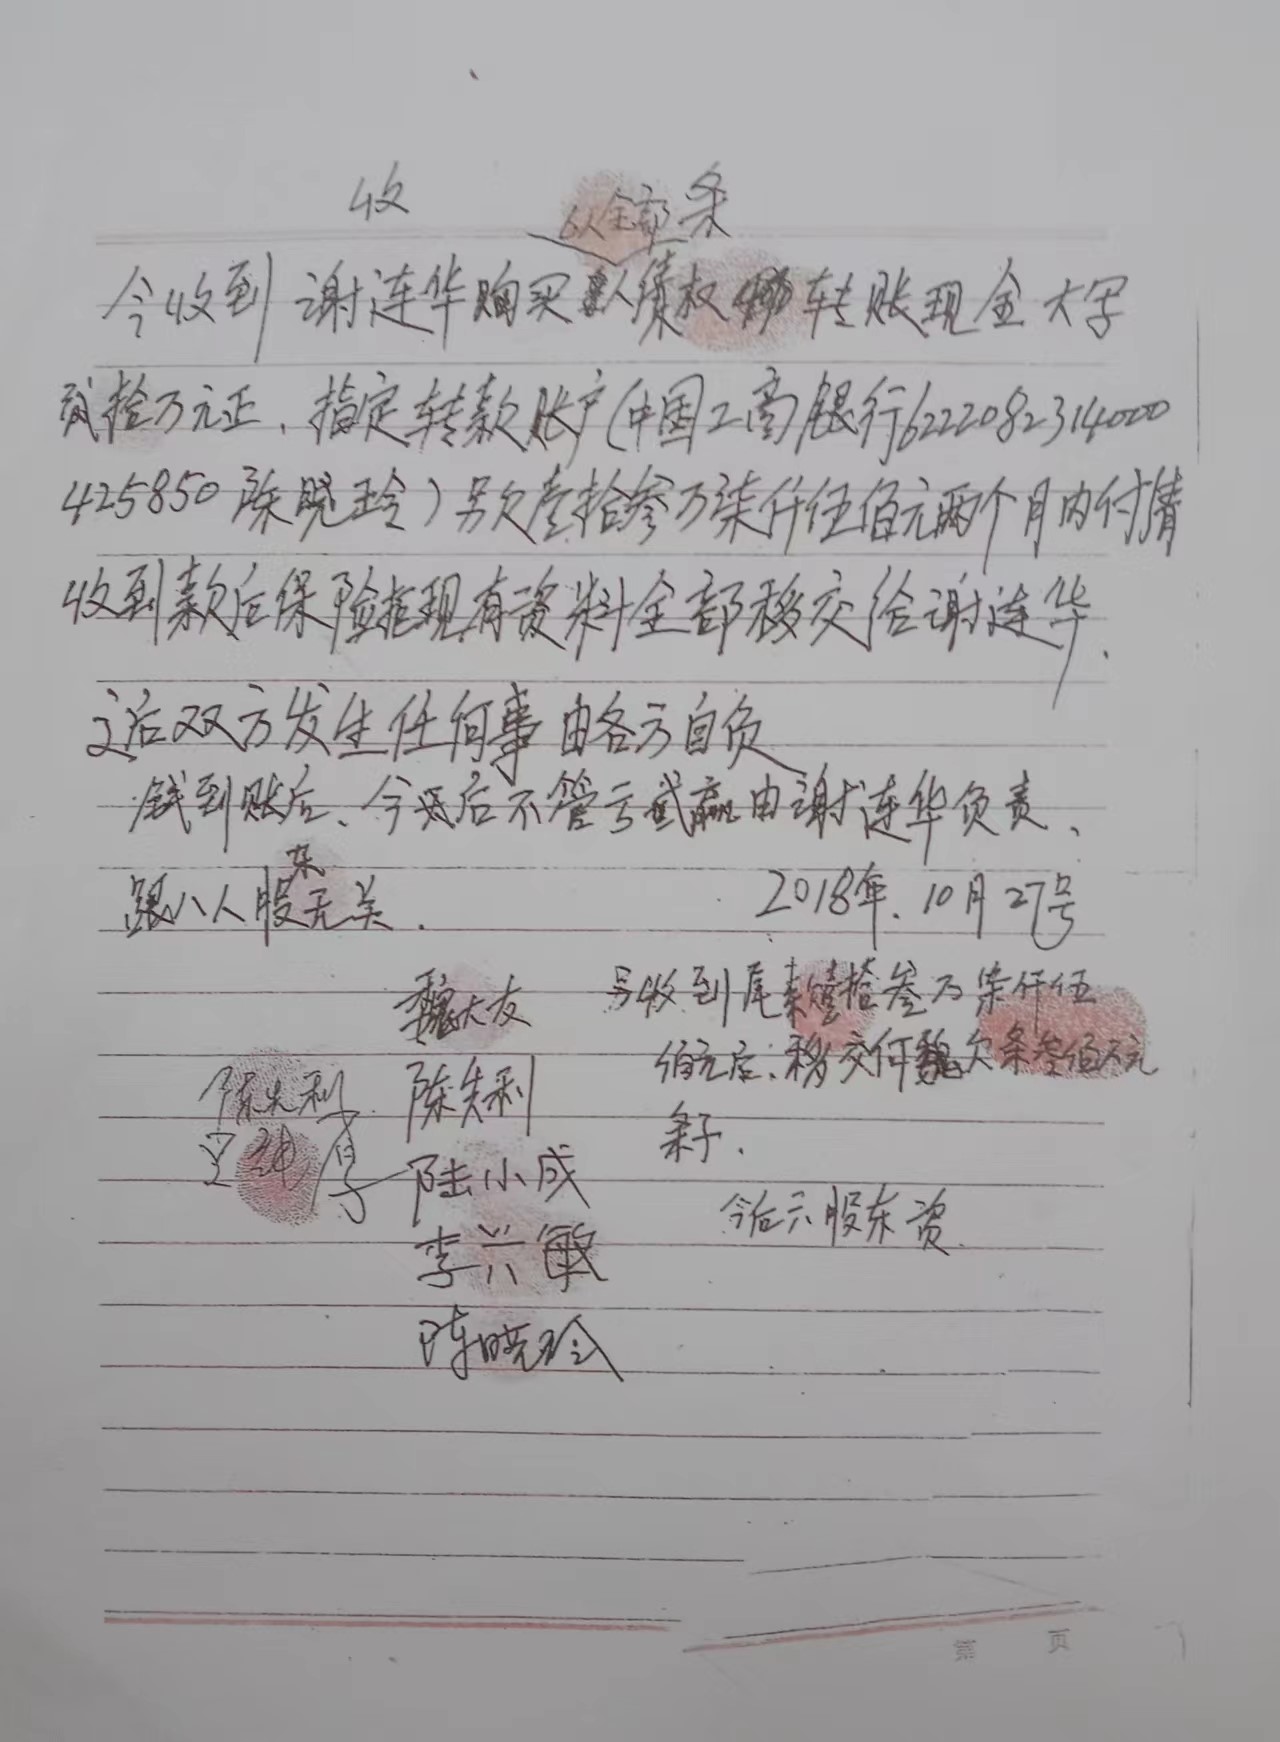 收 条
6人全部
今收到谢连华购买人债权转账现金大写
贰拾万元正、指定转款账户(中国工商银行6222082314000
425850陈晓玲)另欠壹拾叁万柒仟伍佰元两个月内付清
收到款后保险柜现有资料全部移交给谢连华、
之后双方发生任何事由各方自负
钱到账后、今后不管亏或赢由谢连华负责、
跟八人股东无关.
2018年.10月27号
魏大友
另收到尾款壹拾叁万柒仟伍
佰元后.移交何魏欠条叁佰万元
条子.
陈先利
陈先利
陆小成
今后六股东资
李兴敏
陈晓玲
第 页